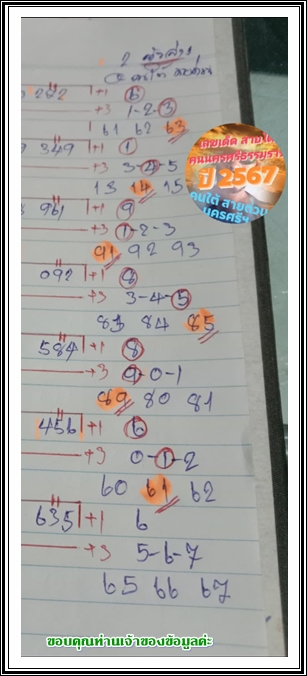 2 ตัวล่าง
292 +1 6
+3 1-2-3
61 62 63
9 349 +1 1
+3 3-4-5
13 14 15
961 +1 9
+3 1-2-3
91 92 93
092 +1 8
+3 3-4-5
83 84 85
584 +1 8
+3 9-0-1
89 80 81
456 +1 6
+3 0-1-2
60 61 62
635 +1 6
+3 5-6-7
65 66 67
เลขเด็ด สายใต้
คนนครศรีธรรมราช
ปี 2567
คนใต้ สายตรง
นครศรีฯ
ขอบคุณท่านเจ้าของข้อมูลค่ะ